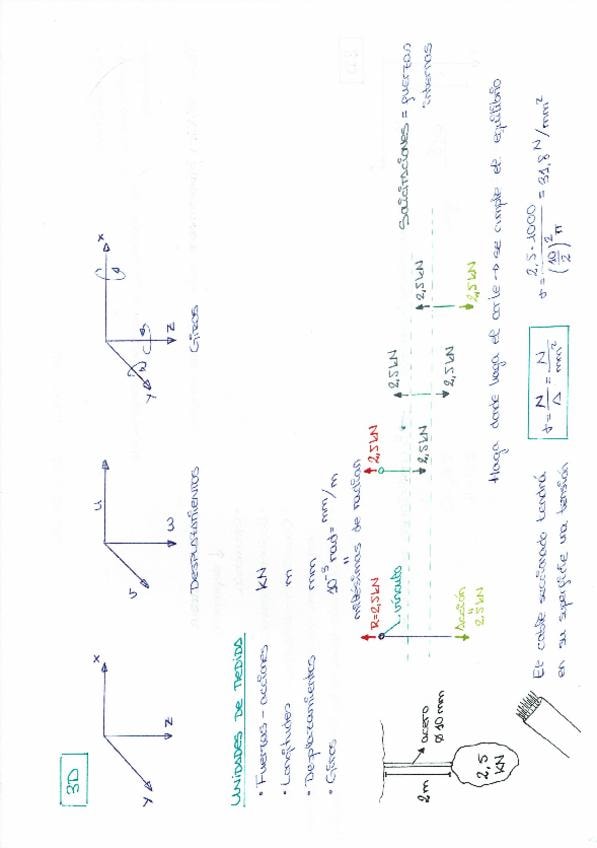 3D
X
Y
Z
U
V
W
Desplazamientos
X
Y
Z
Giros
UNIDADES DE MEDIDA
• Fuerzas - acciones KN
• Longitudes m
• Desplazamientos mm
• Giros 10⁻³ rad = mm/m
milésimas de radian
2m
acero
Ø10 mm
2,5
KN
R=2,5KN
vínculo
Acción
2,5KN
2,5KN
2,5KN
2,5KN
2,5KN
2,5KN
2,5KN
Solicitaciones = fuerzas
internas
Haga donde haga el corte → se cumple el equilibrio
El cable seccionado tendrá
en su superficie una tensión
σ = N/A = N/mm²
σ = 2,5·1000/(10/2)²π = 31,8 N/mm²